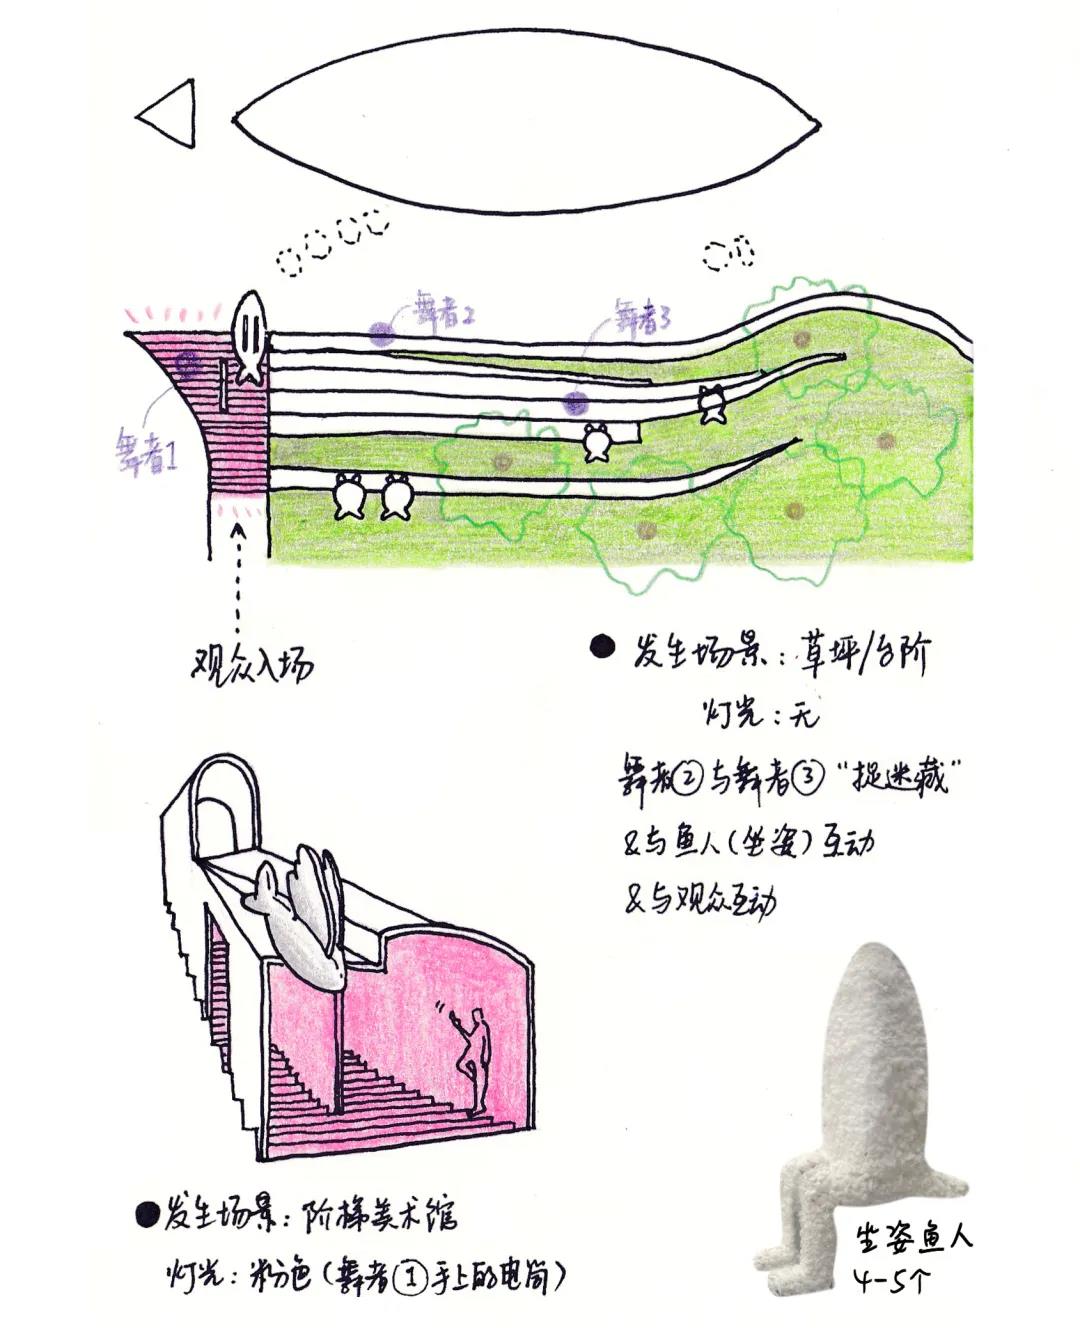 舞者2
舞者3
舞者1
观众入场
发生场景：草坪/台阶
灯光：无
舞者②与舞者③“捉迷藏”
&与鱼人（坐姿）互动
&与观众互动
发生场景：阶梯美术馆
灯光：粉色（舞者①手上的电筒）
坐姿鱼人
4-5个